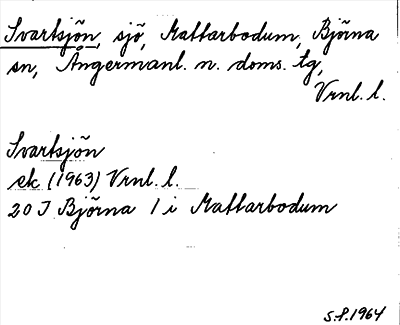 Svartsjön, sjö, Mattarbodum, Björna
sn, Ångermanl. n. doms. lg,
Vrnl. l.
Svartsjön
ek (1963) Vrnl. l.
20 J Björna 1 i Mattarbodum
S.P. 1964